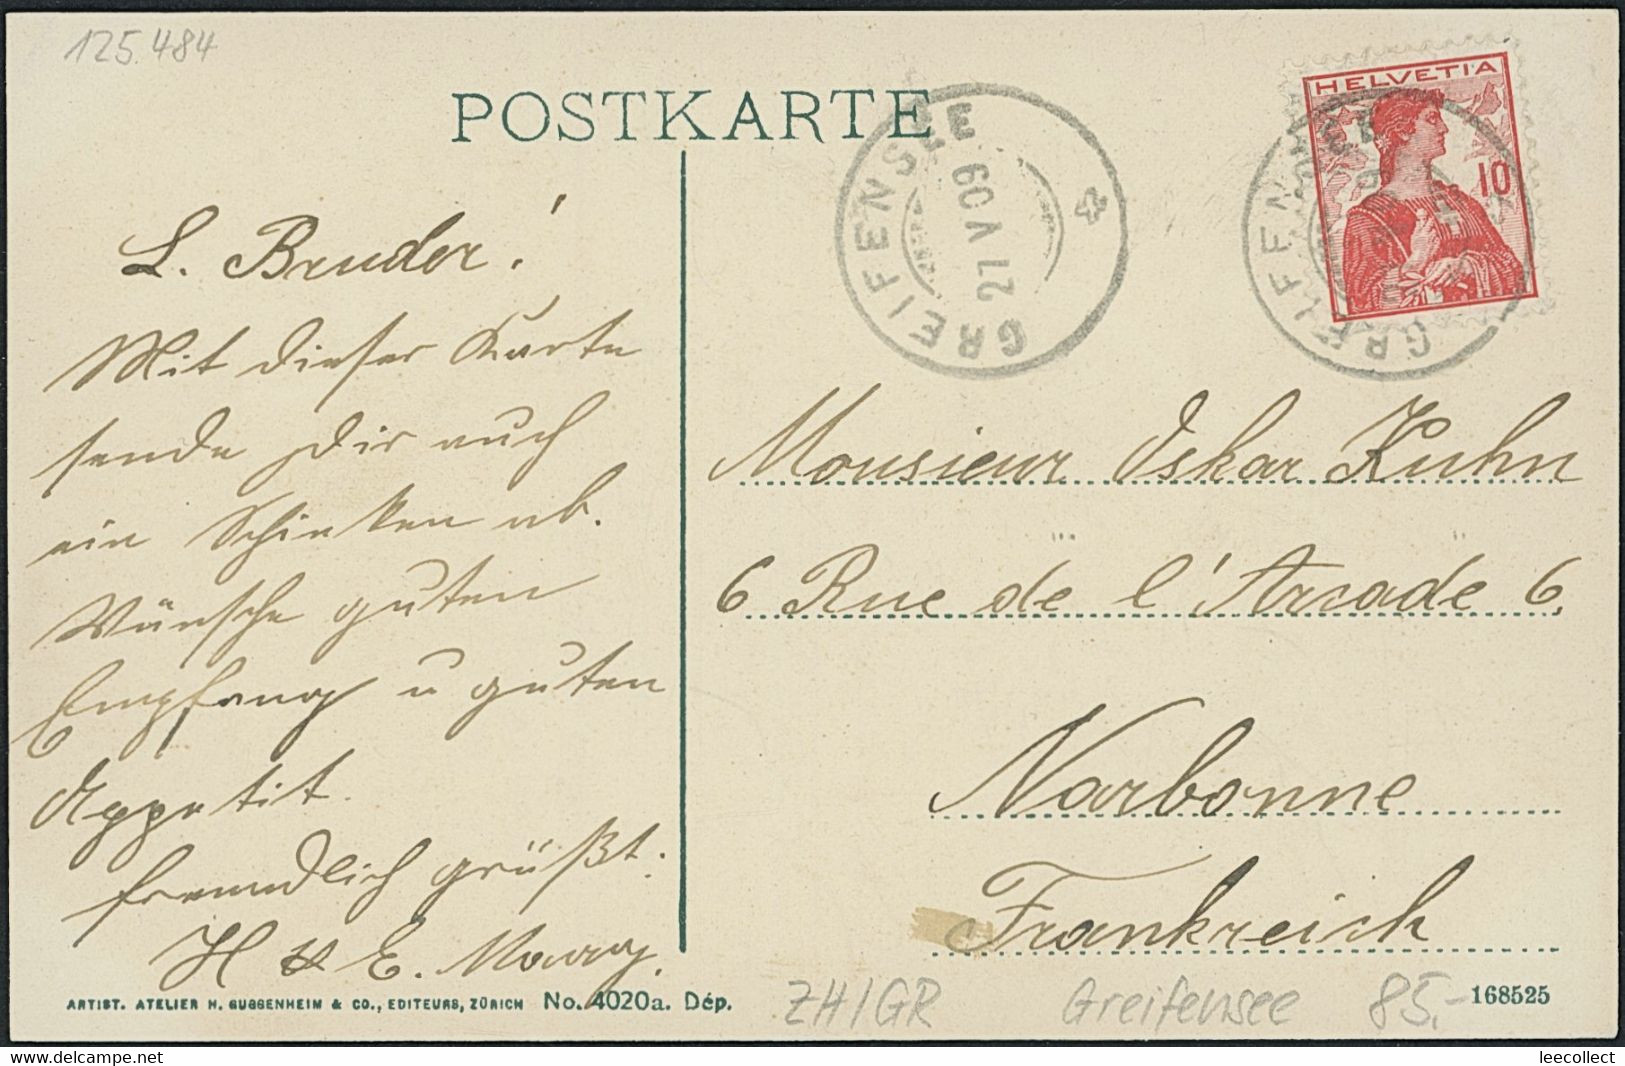 125.484
POSTKARTE
GREIFENSEE
27 V 09
HELVETIA
10
GREIFENSEE
L. Bruder!
Mit dieser Karte
sende Dir auch
ein Schinken ab.
Wünsche guten
Empfang u guten
Appetit.
freundlich grüßt.
H & E.
Monsieur Oskar Kuhn
6 Rue de l'Arcade 6.
Narbonne
Frankreich
ARTIST. ATELIER H. GUGGENHEIM & CO., EDITEURS, ZÜRICH No. 4020a. Dép.
ZH/GR Greifensee 85.-
168525
leecollect